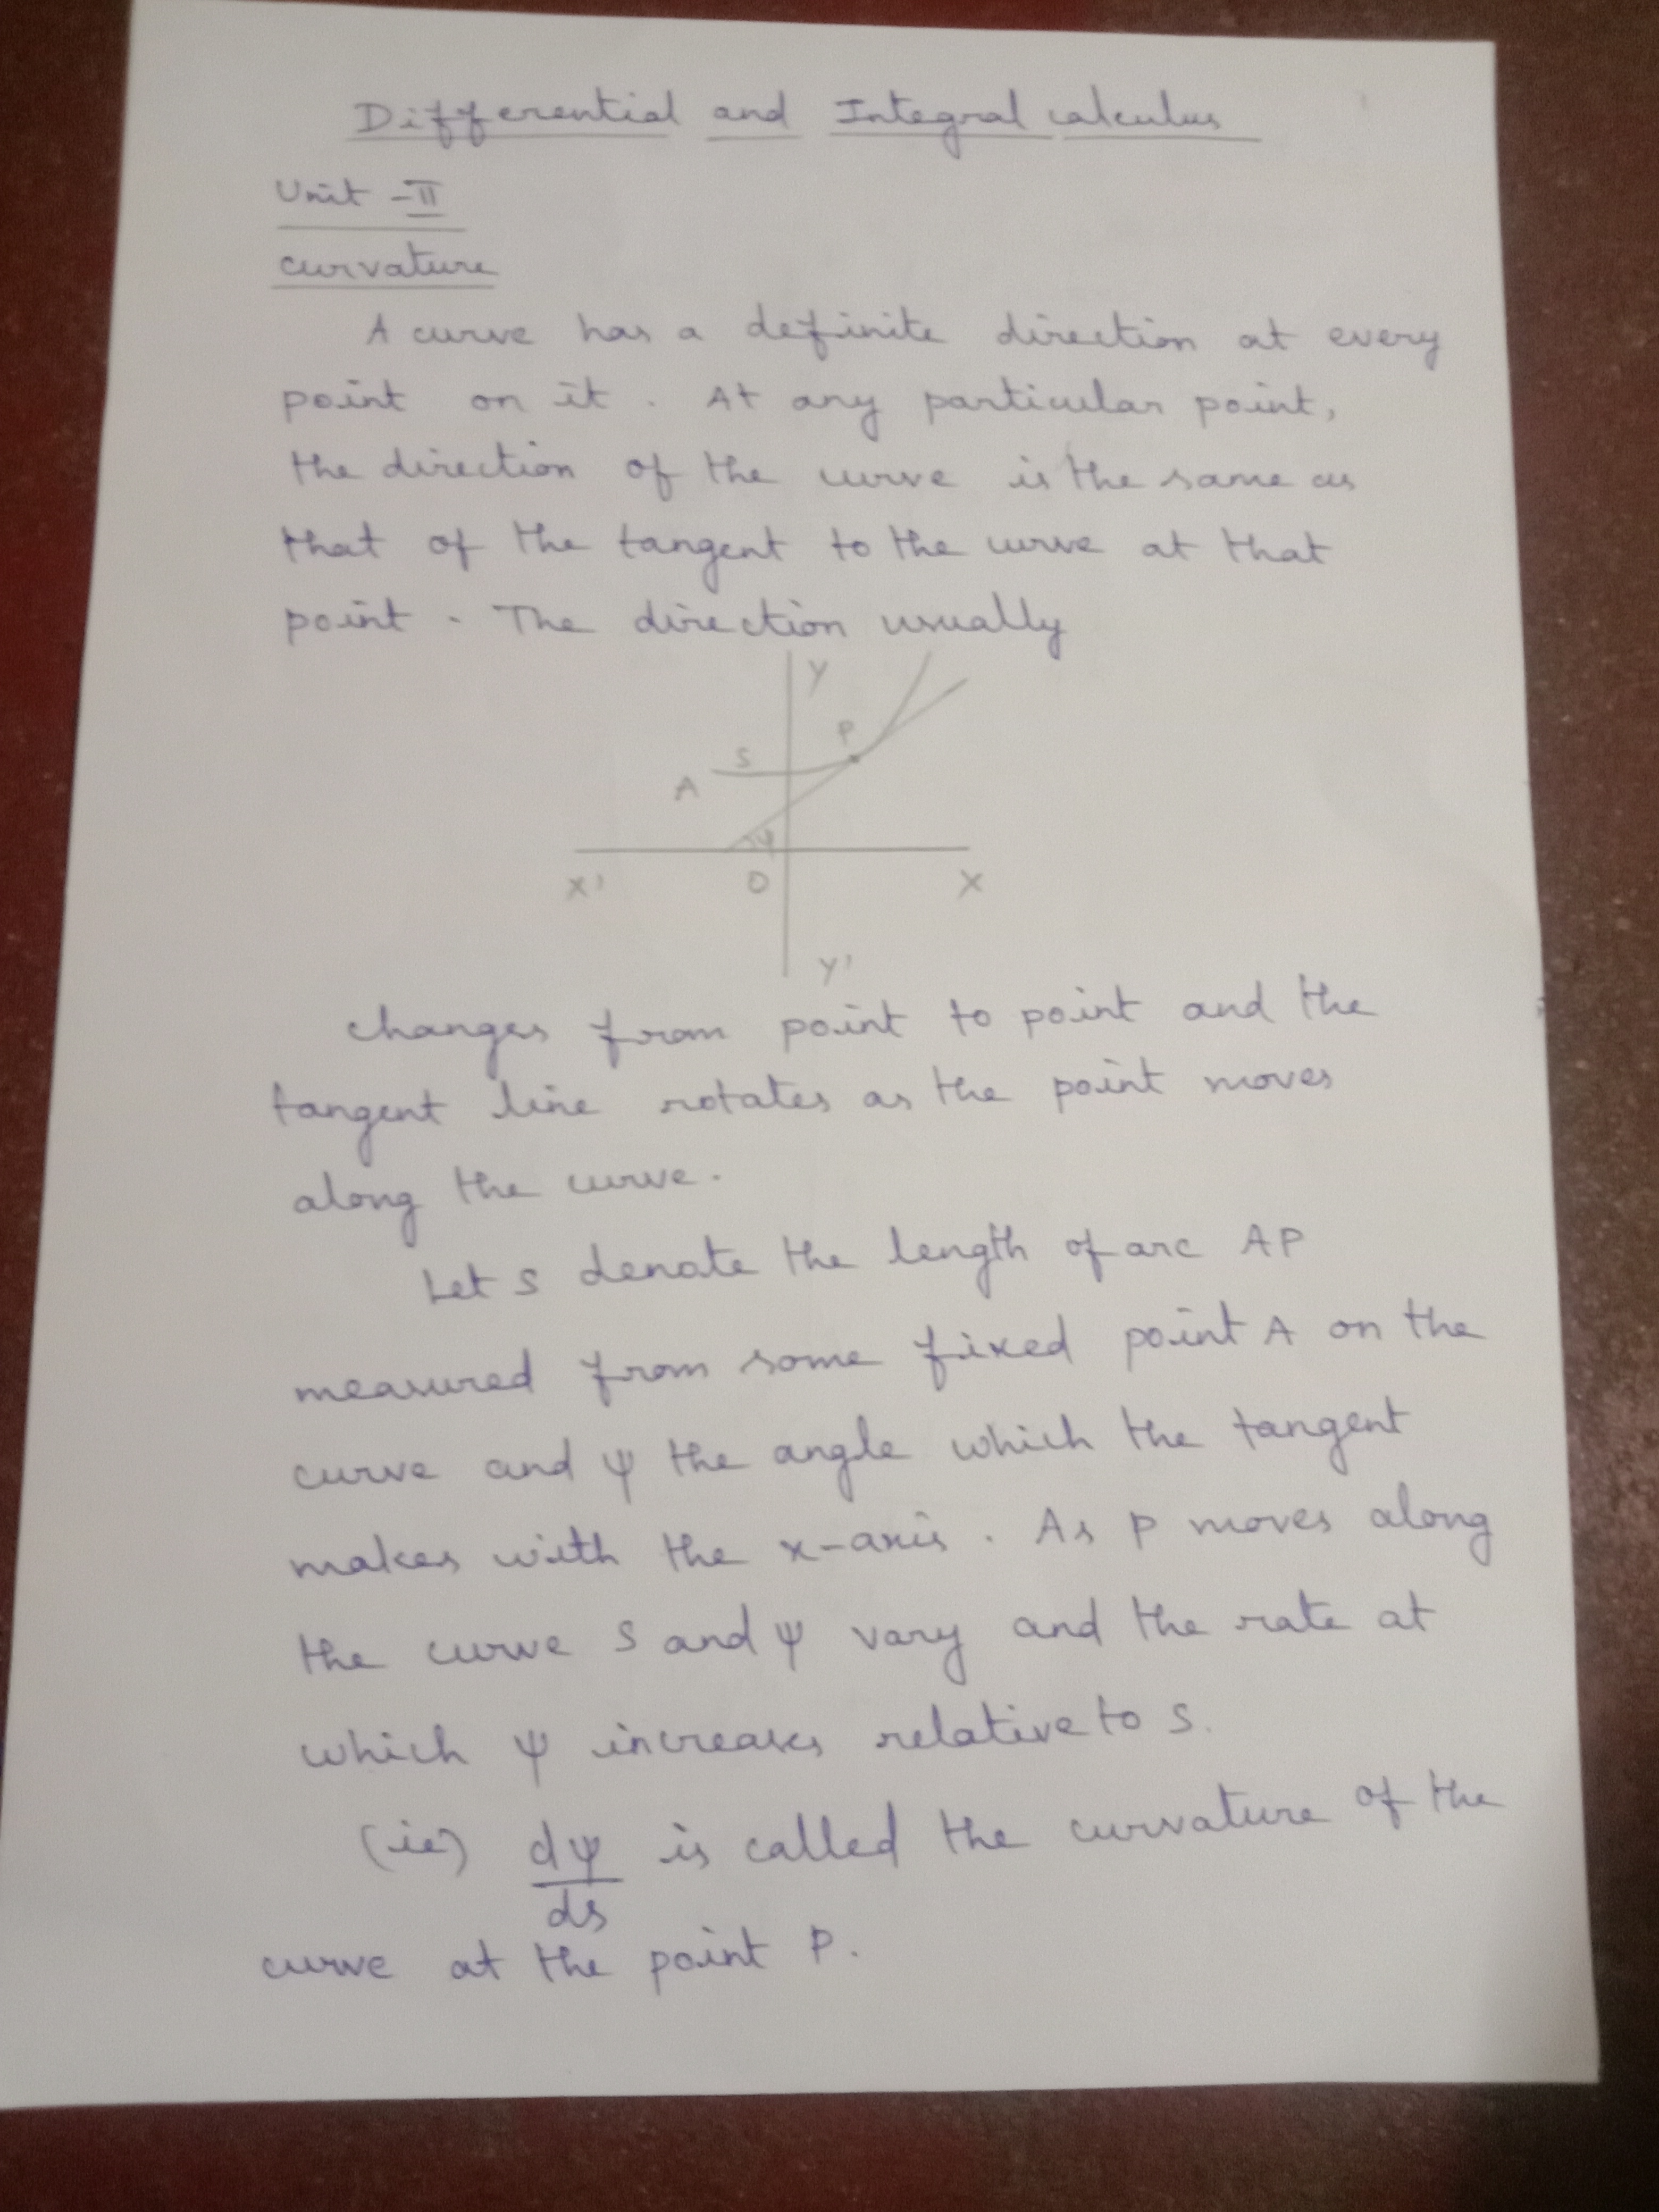 Differential and Integral calculus
Unit - II
curvature
A curve has a definite direction at every
point on it. At any particular point,
the direction of the curve is the same as
that of the tangent to the curve at that
point. The direction usually
Y
P
S
A
ψ
X' O X
Y'
changes from point to point and the
tangent line rotates as the point moves
along the curve.
Let s denote the length of arc AP
measured from some fixed point A on the
curve and ψ the angle which the tangent
makes with the x-axis. As P moves along
the curve s and ψ vary and the rate at
which ψ increases relative to s.
(ie) dψ/ds is called the curvature of the
curve at the point P.